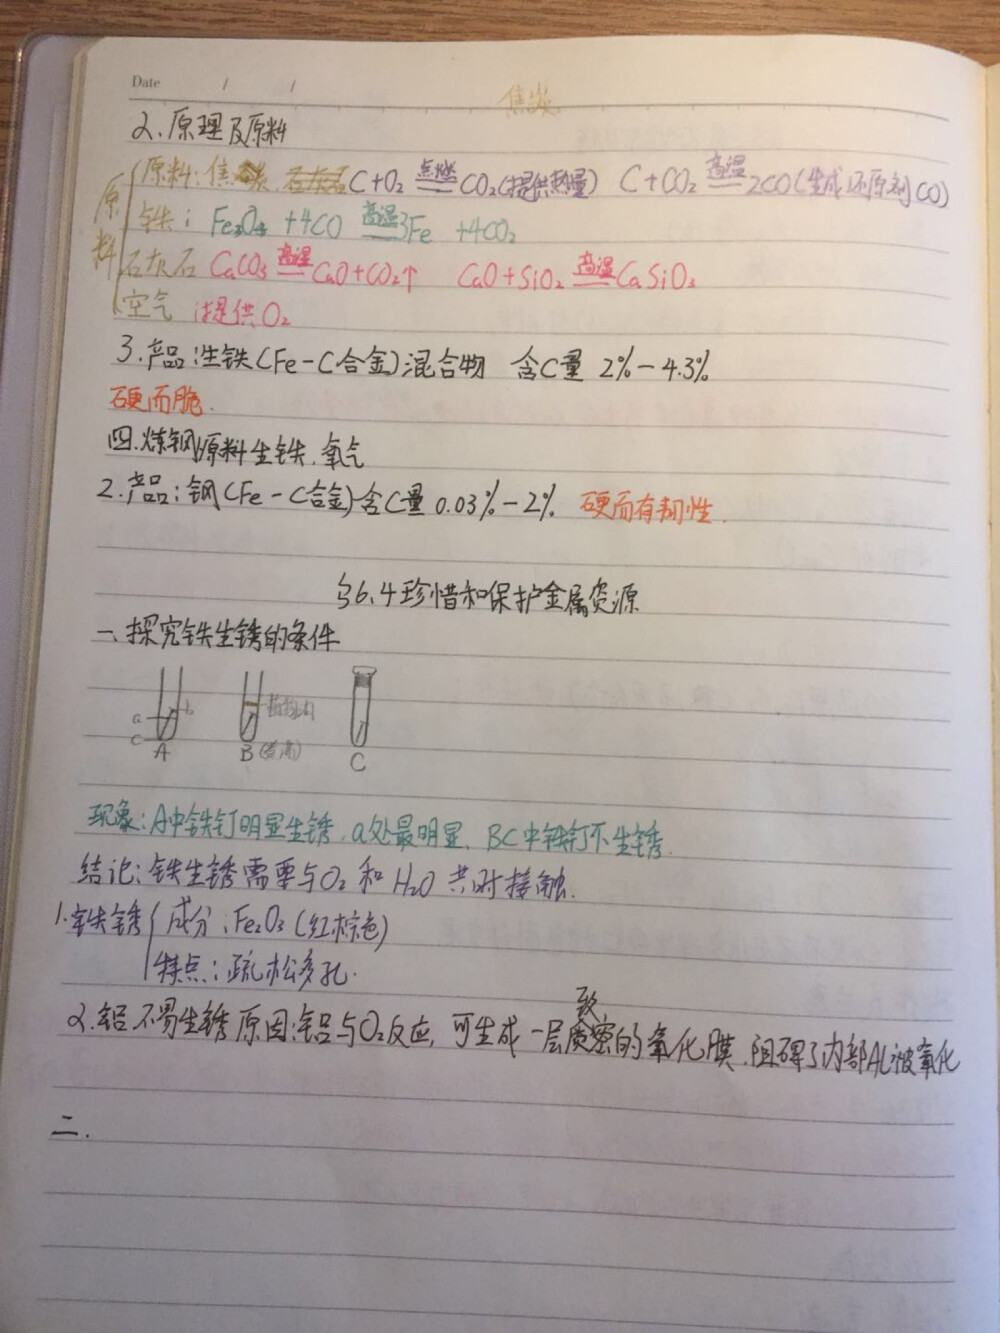 Date / /
焦炭
2.原理及原料
原料
原料:焦炭 石灰石 C+O₂ 点燃══ CO₂(提供热量) C+CO₂ 高温══ 2CO(生成还原剂CO)
铁: Fe₃O₄ +4CO 高温══ 3Fe +4CO₂
石灰石 CaCO₃ 高温══ CaO+CO₂↑ CaO+SiO₂ 高温══ CaSiO₃
空气 提供O₂
3.产品:生铁(Fe-C合金)混合物 含C量 2%-4.3%
硬而脆.
四.炼钢原料生铁.氧气
2.产品:钢(Fe-C合金)含C量 0.03%-2% 硬而有韧性.
§6.4珍惜和保护金属资源
一、探究铁生锈的条件
a b c
A B C
现象:A中铁钉明显生锈.a处最明显、BC中铁钉不生锈.
结论:铁生锈需要与O₂和H₂O共同接触.
1.铁锈 成分:Fe₂O₃(红棕色)
特点:疏松多孔.
2.铝不易生锈原因:铝与O₂反应,可生成一层质密的氧化膜.阻碍了内部AL被氧化
致
二.